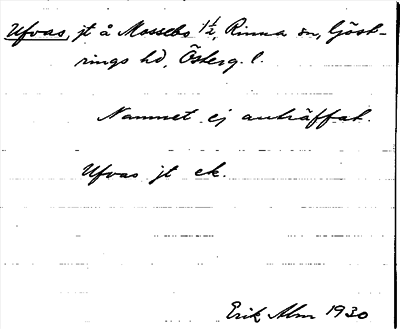 Ufvas, jt å Mossebo 1/2, Rinna sn, Göst-
rings hd, Österg. l.
Namnet ej anträffat.
Ufvas jt ek.
Erik Alm 1930